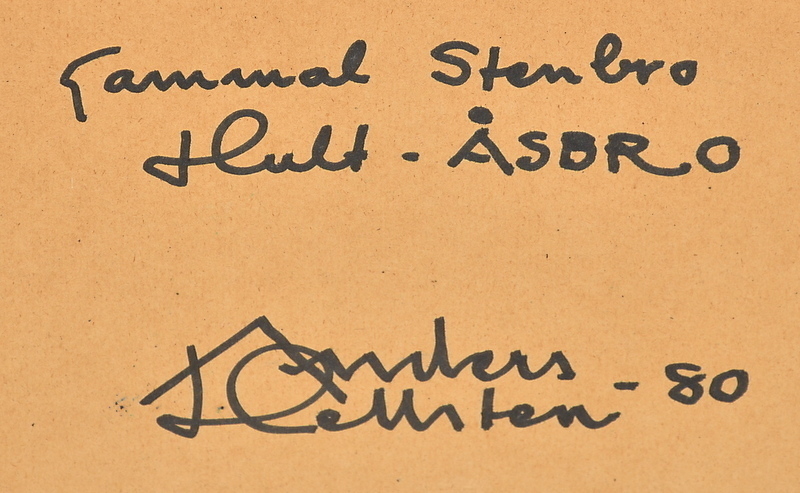 Gammal Stenbro
Hult - ÅSBRO
Anders
Hellsten - 80